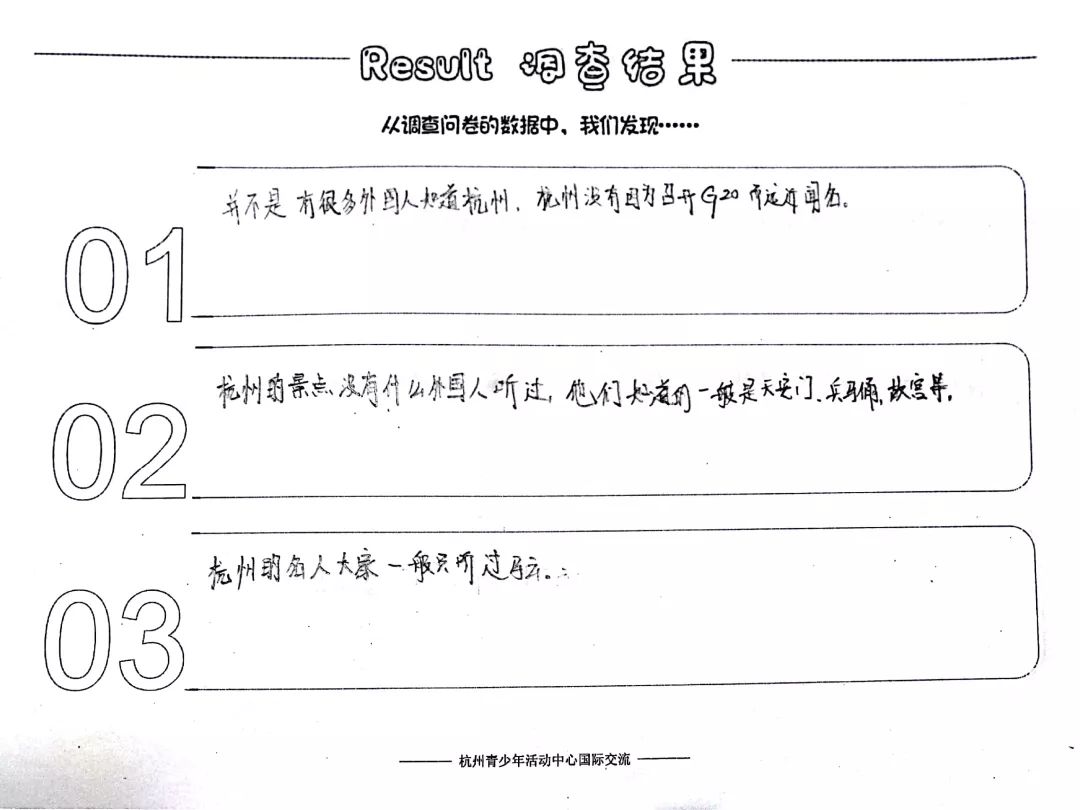 Result 调查结果
从调查问卷的数据中，我们发现……
01
并不是有很多外国人知道杭州，杭州没有因为召开G20而远近闻名。
02
杭州的景点没有什么外国人听过，他们知道的一般是天安门、兵马俑，故宫等。
03
杭州的名人大家一般只听过马云。
杭州青少年活动中心国际交流